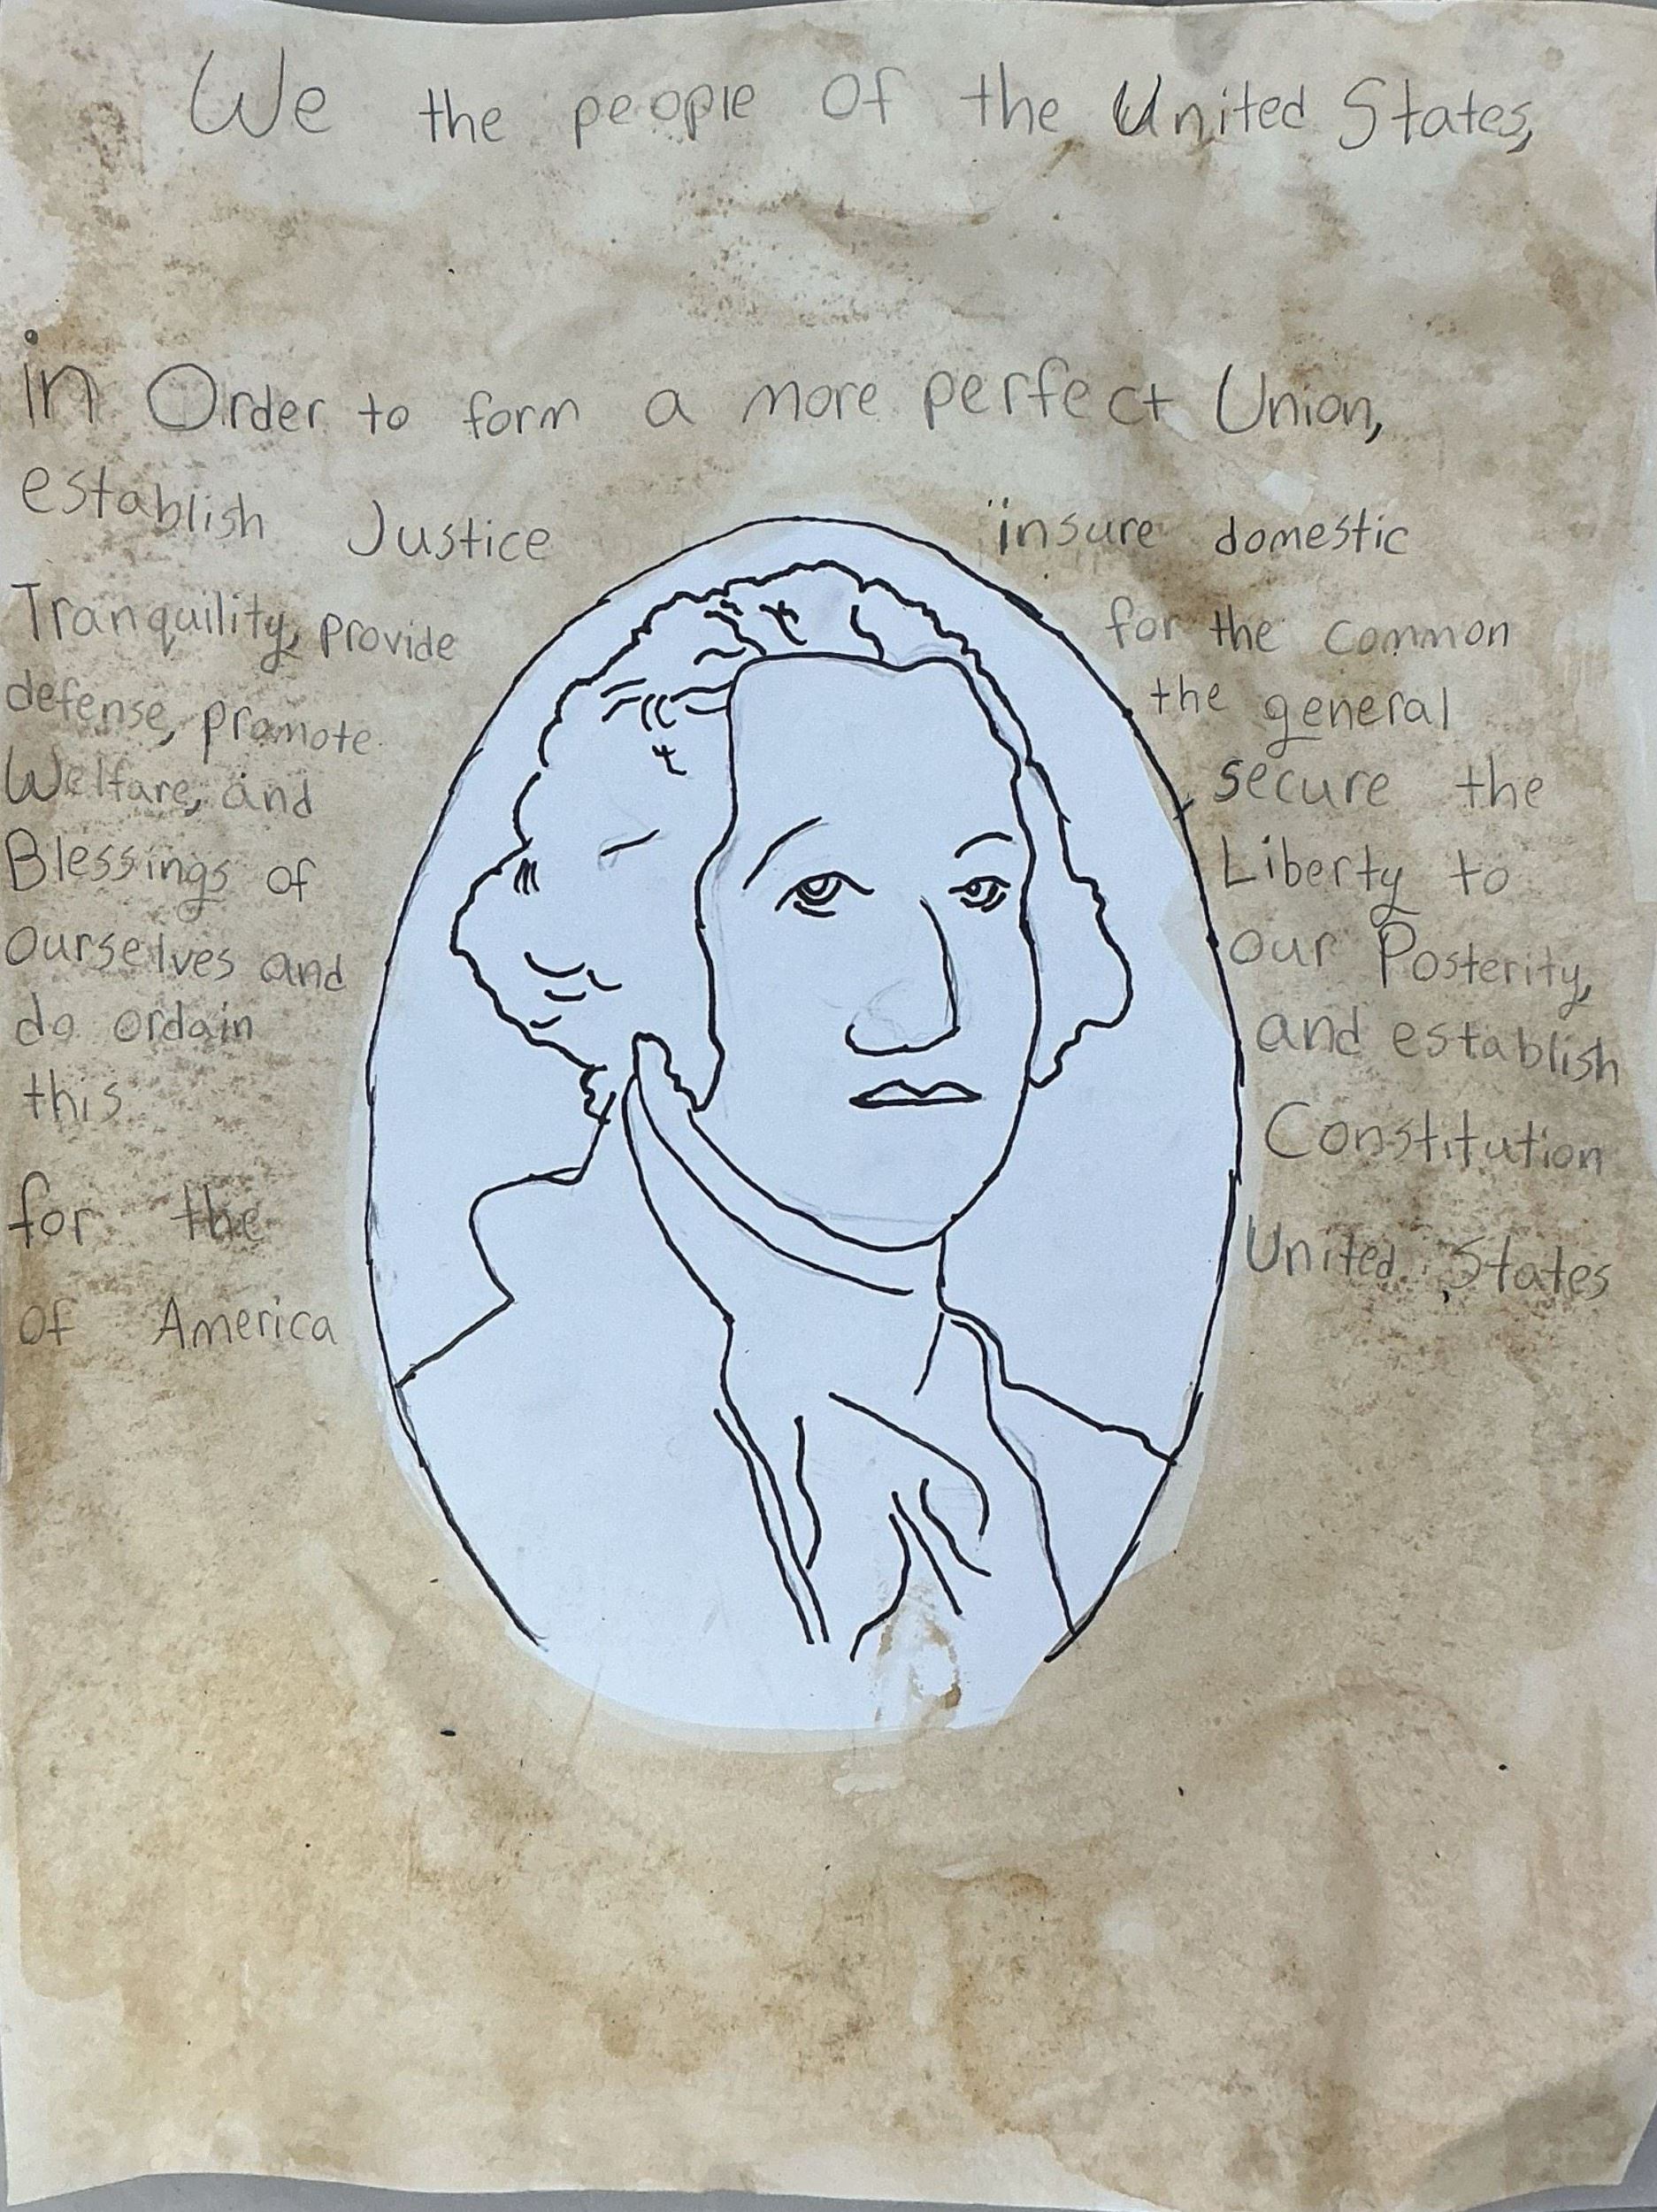 We the people of the United States,
in Order to form a more perfect Union,
establish Justice insure domestic
Tranquility, provide for the common
defense, promote the general
Welfare, and secure the
Blessings of Liberty to
ourselves and our Posterity,
do ordain and establish
this Constitution
for the United States
of America